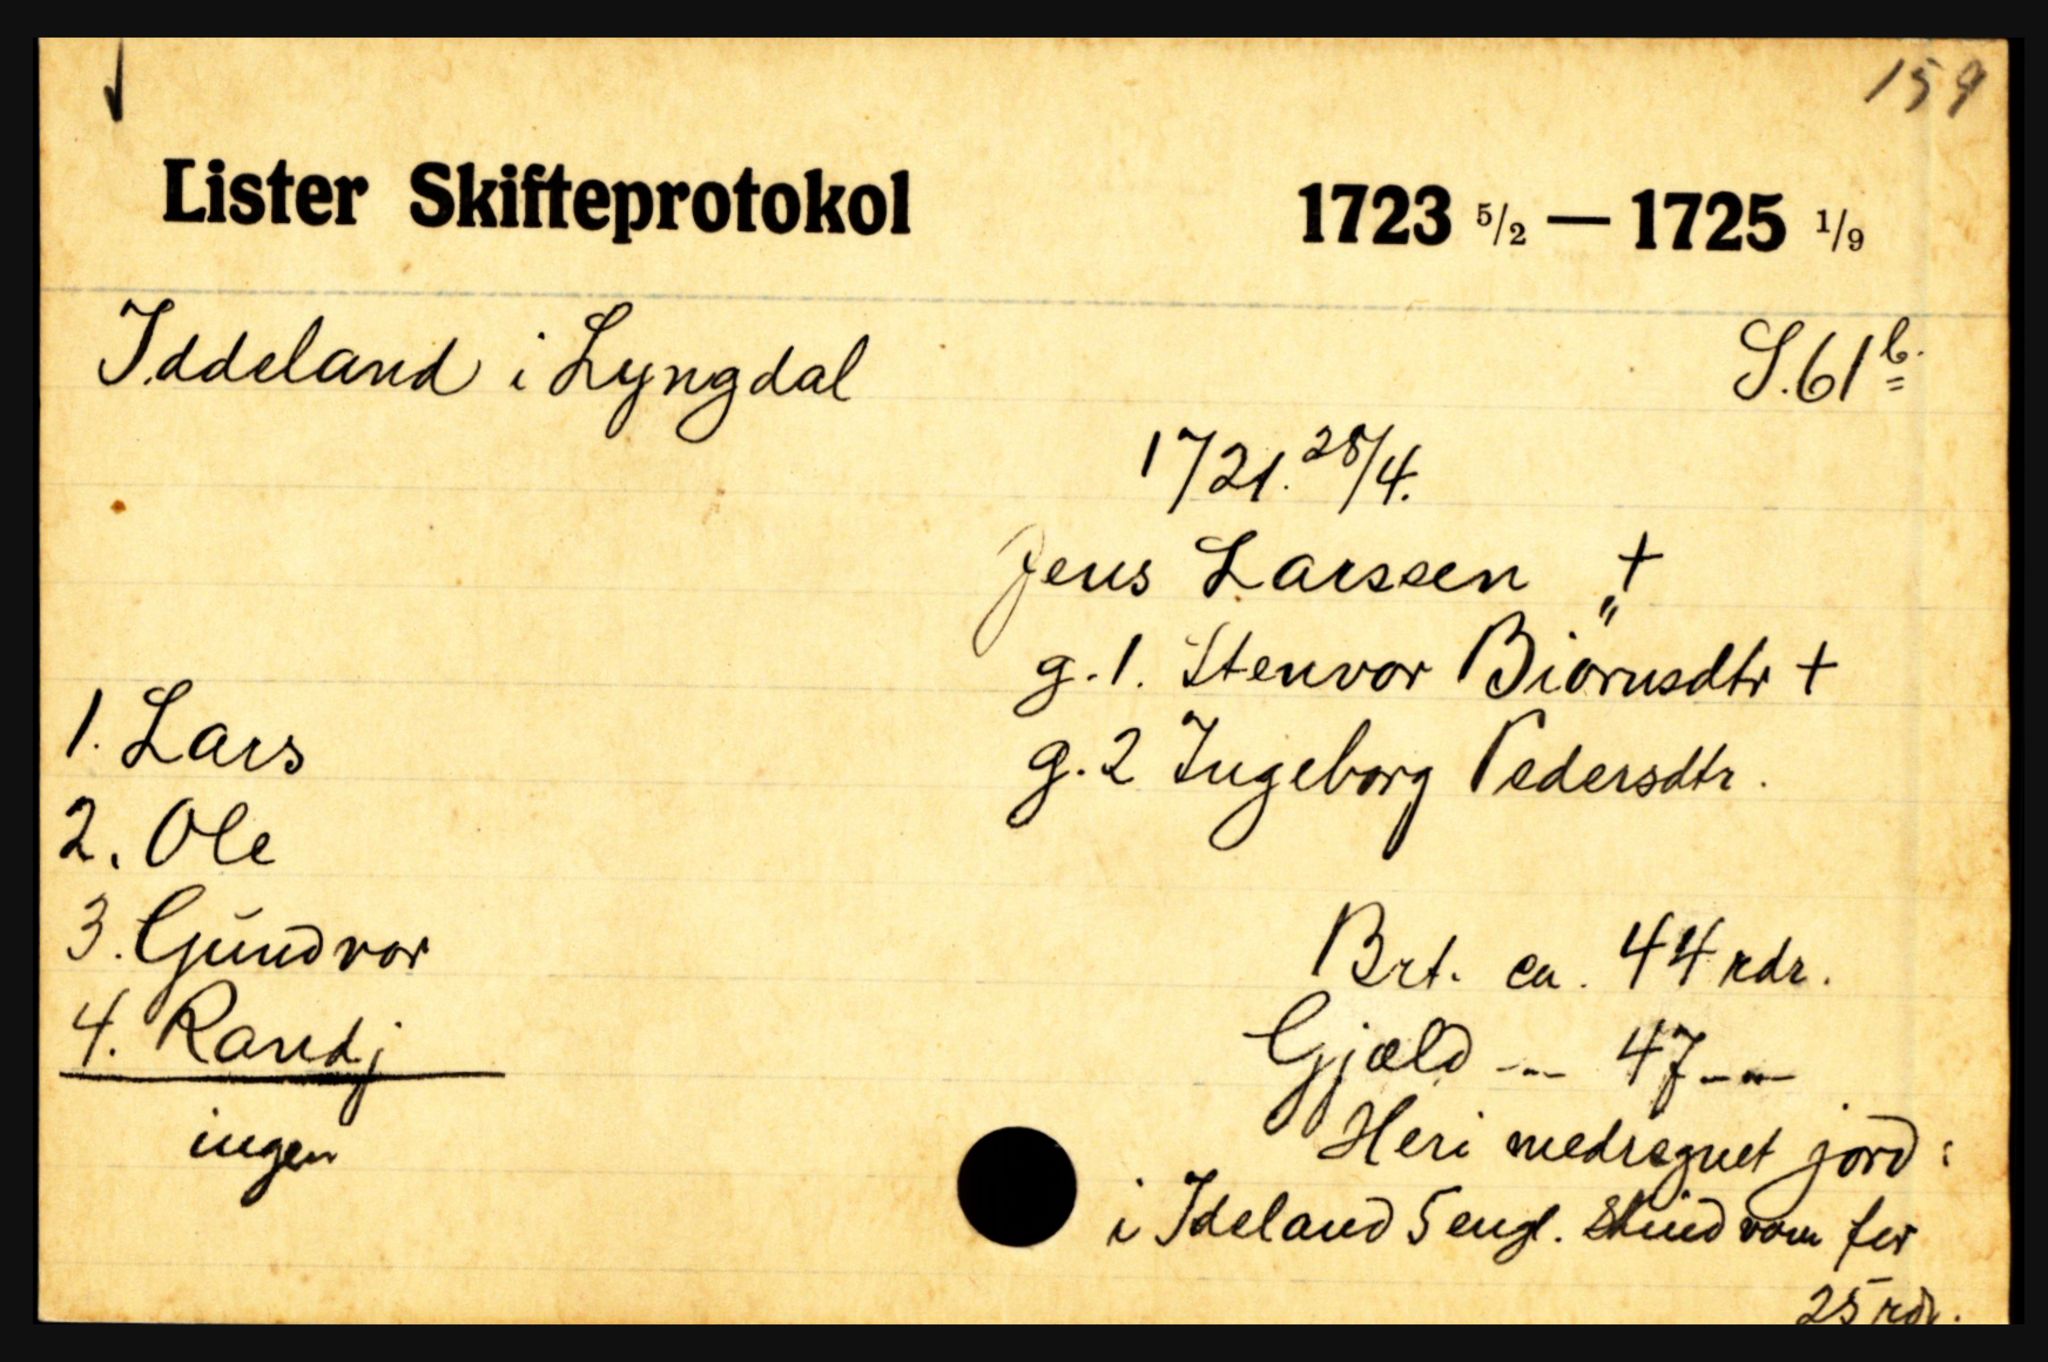 159
Lister Skifteprotokol 1723 5/2 — 1725 1/9
Iddeland i Lyngdal S. 61 b.
1721. 28/4.
Jens Larssen +
g. 1. Stenvor Biörnsdtr +
g. 2 Ingeborg Pedersdtr.
1. Lars
2. Ole
3. Gundvor
4. Randj
ingen
Brt. ca. 44 rdr.
Gjæld -"- 47 -"-
Heri medregnet jord:
i Ideland 5 engl. for
25 rdr.